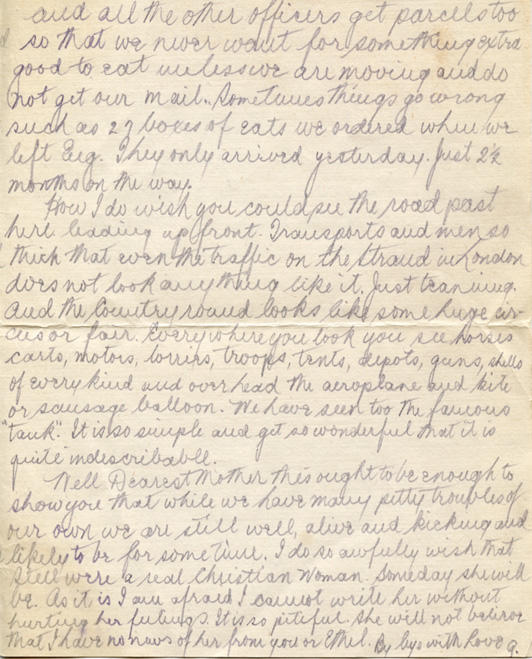 and all the other officers get parcels too
so that we never want for something extra
good to eat unless we are moving and do
not get our mail. Sometimes things go wrong
such as 27 boxes of eats we ordered when we
left Eng. They only arrived yesterday. Just 2½
months on the way.
How I do wish you could see the road past
here leading up front. Transports and men so
thick that even the traffic on the Strand in London
does not look anything like it. Just teaming.
And the Country round looks like some huge cir-
cus or fair. Everywhere you look you see horses
carts, motors, lorries, troops, tents, depots, guns, shells
of every kind and over head the aeroplane and kite
or sausage balloon. We have seen too the famous
"tank". It is so simple and yet so wonderful that it is
quite indescribable.
Well Dearest Mother this ought to be enough to
show you that while we have many petty troubles of
our own we are still well, alive and kicking and
likely to be for some time. I do so awfully wish that
were a real Christian Woman. Someday she will
be. As it is I am afraid I cannot write her without
hurting her feelings. It is so pitiful. She will not believe
that I have no news of her from you or Ethel. By bys with Love